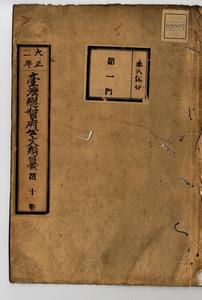 永久保存
第一門
大正二年
臺灣總督府公文類纂 第十卷